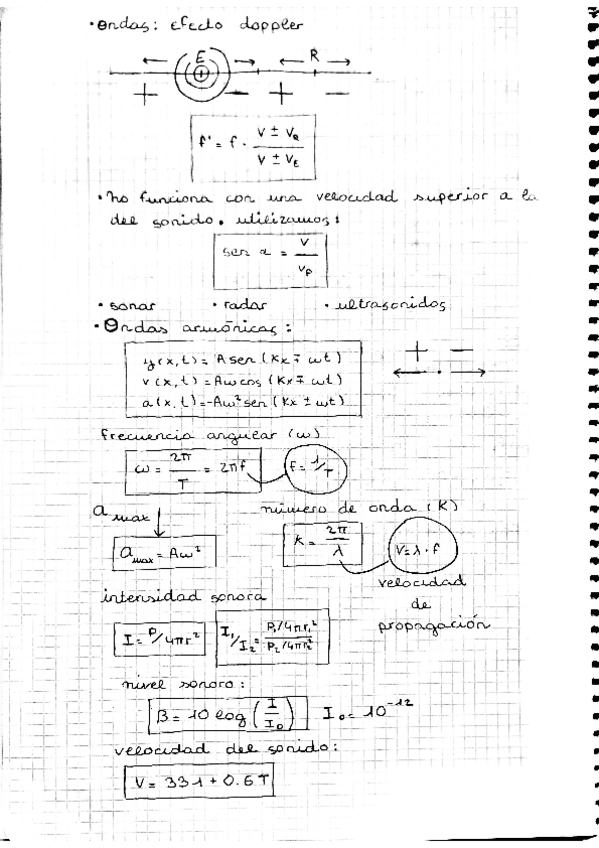 • Ondas: Efecto doppler
← E → ← R →
+ − + −
f' = f · (V ± V_R) / (V ± V_E)
• no funciona con una velocidad superior a la
del sonido. utilizamos:
sen α = V / V_P
• sonar • radar • ultrasonidos
• Ondas armónicas:
y(x,t) = A sen (Kx ∓ ωt)
v(x,t) = Aω cos (Kx ∓ ωt)
a(x,t) = -Aω² sen (Kx ± ωt)
+ −
frecuencia angular (ω)
ω = 2π / T = 2πf f = 1/T
a max número de onda (K)
a max = Aω² K = 2π / λ V = λ · f
velocidad
de
propagación
intensidad sonora
I = P/4πr² I₁/I₂ = P₁/4πr₁² / P₂/4πr₂²
nivel sonoro:
β = 10 log (I / I₀) I₀ = 10⁻¹²
velocidad del sonido:
V = 331 + 0.6T